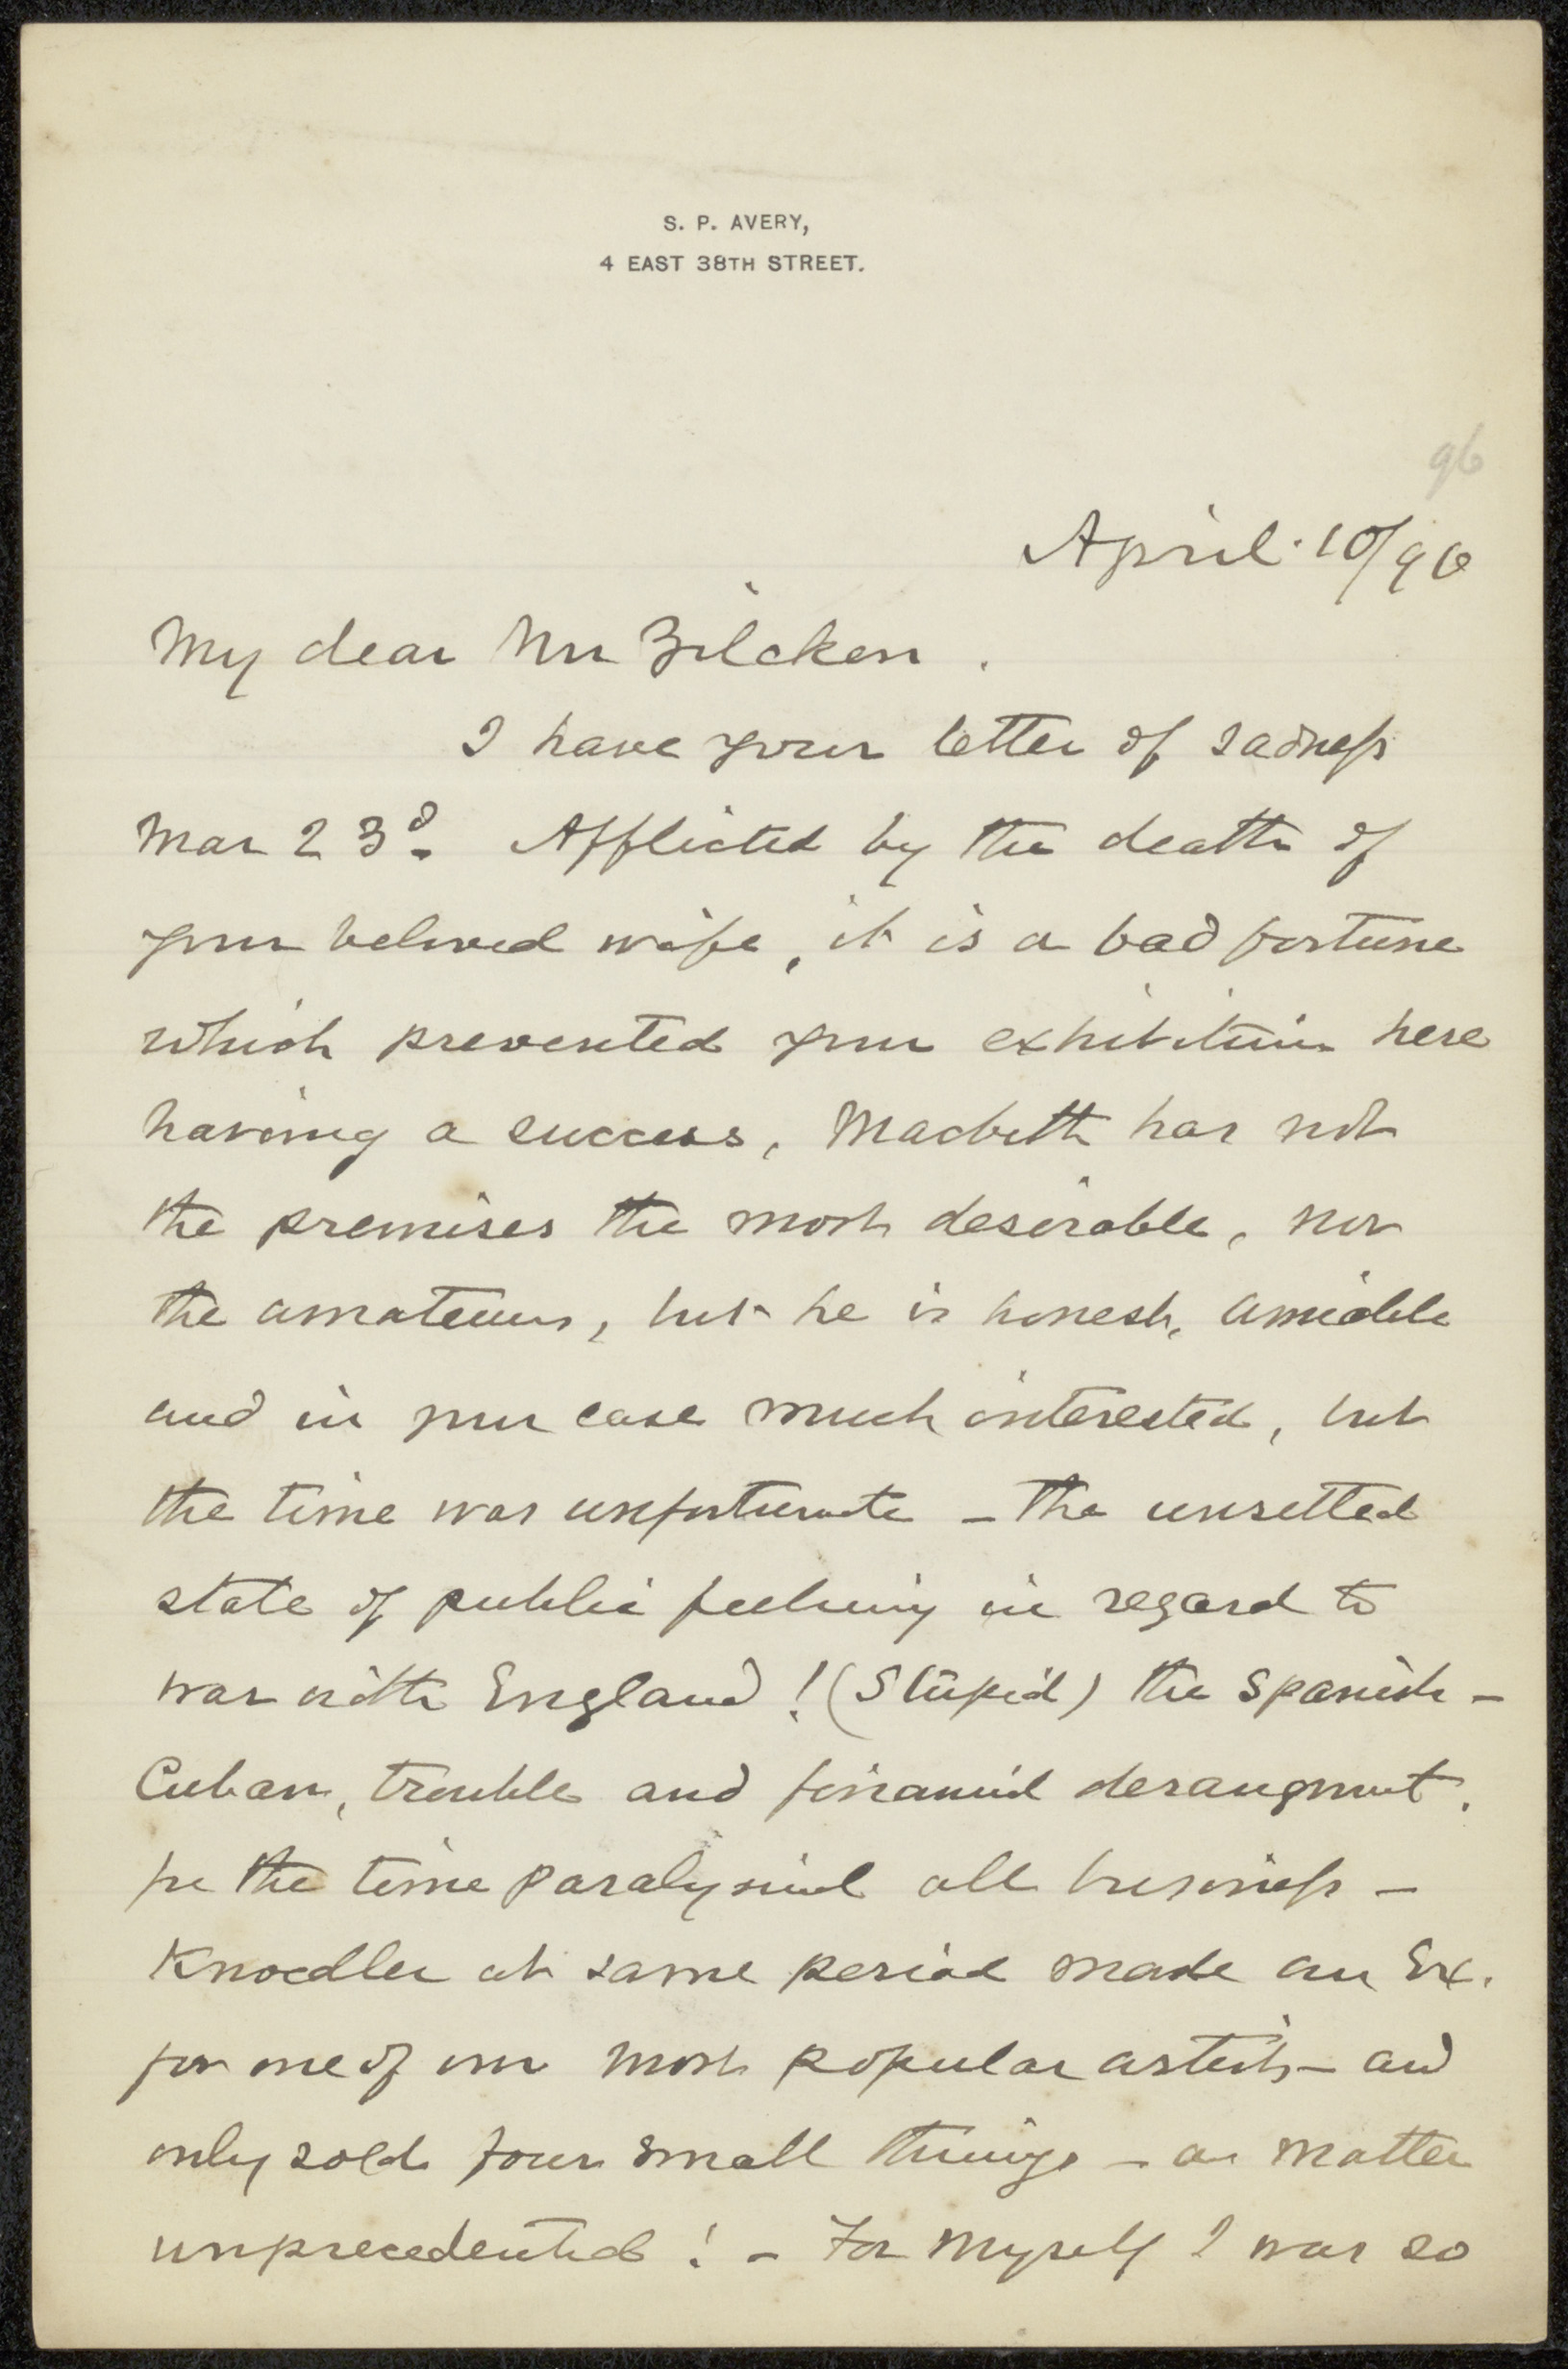 S. P. AVERY,
4 EAST 38TH STREET.
96
April. 10/96
My dear Mr Zilcken.
I have your letter of sadness
Mar 23d. Afflicted by the death of
your beloved wife, it is a bad fortune
which prevented your exhibition here
having a success, Macbeth has not
the premises the most desirable, nor
the amateurs, but he is honest, amiable
and in your case much interested, but
the time was unfortunate – The unsettled
state of public feeling in regard to
war with England! (Stupid) the Spanish –
Cuban, trouble and financial derangment.
for the time paralysied all business –
Knoedler at same period made an Ex.
for one of our most popular artists – and
only sold four small things – a matter
unprecedented! – For myself I was so